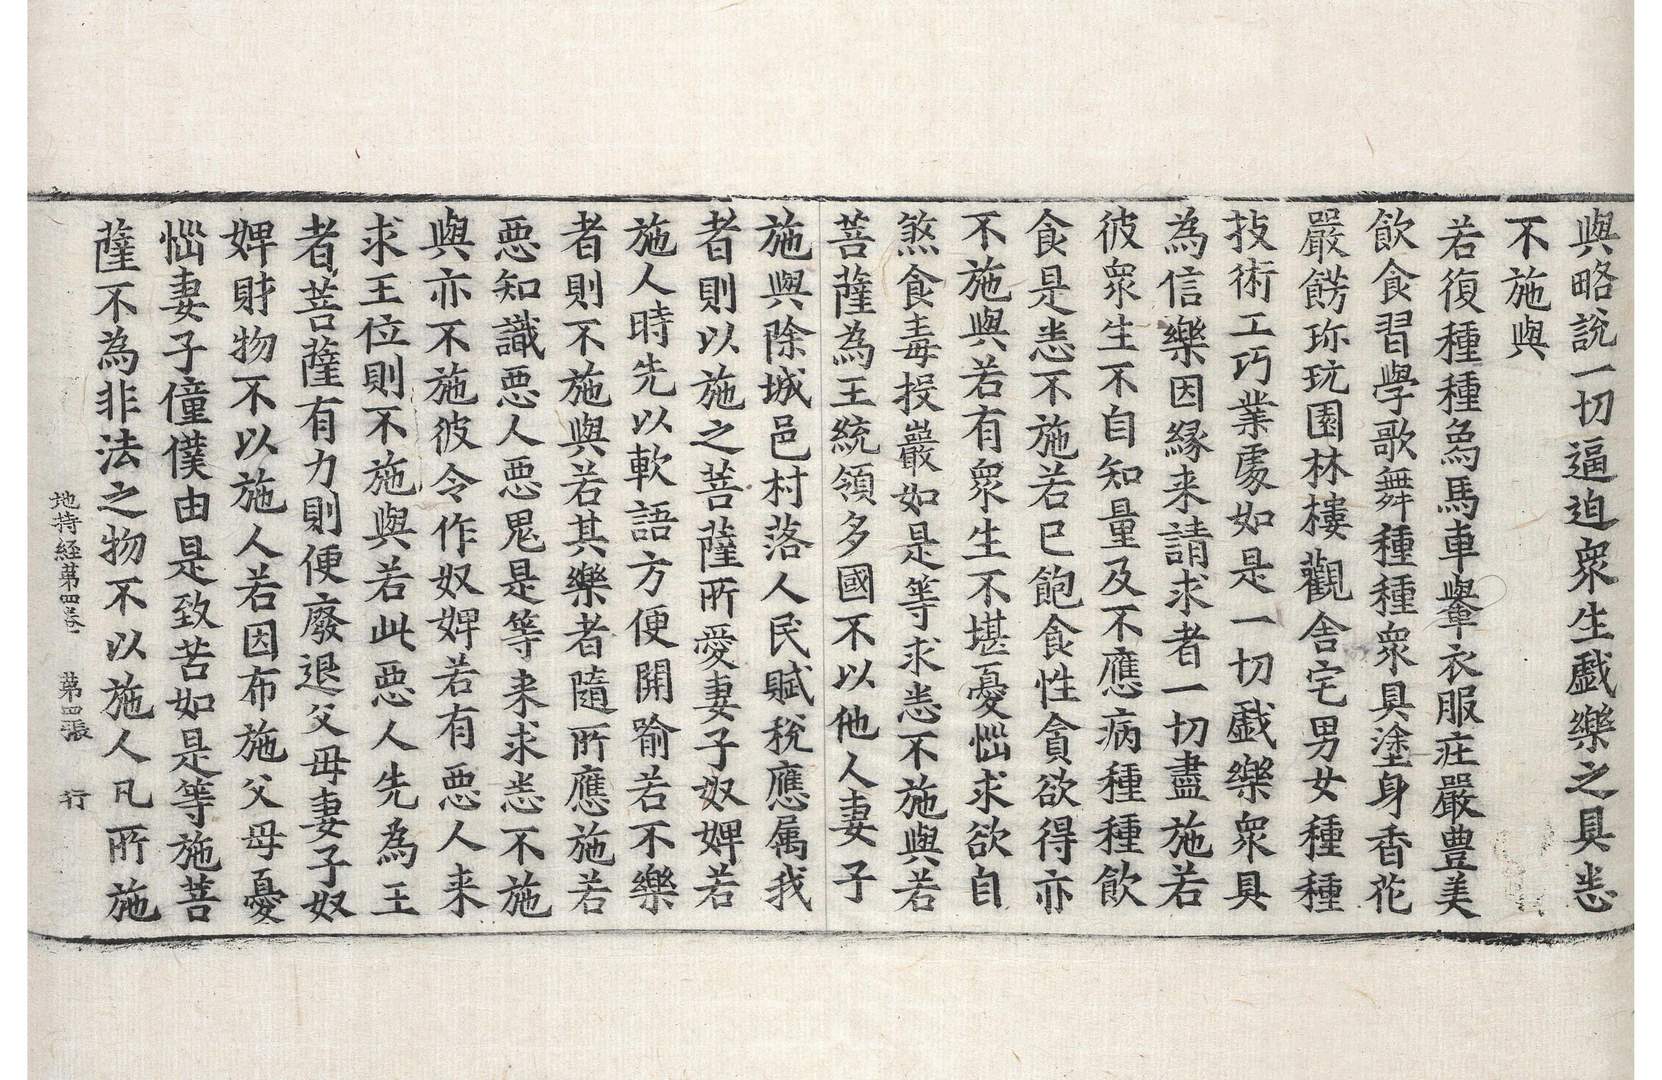 與略說一切逼迫衆生戱樂之具悉
不施與
若復種種烏馬車轝衣服庄嚴豊美
飲食習學歌舞種種衆具塗身香花
嚴餝珎玩園林樓觀舎宅男女種種
技術工巧業䖏如是一切戱樂衆具
為信樂因縁来請求者一切盡施若
彼衆生不自知量及不應病種種飲
食是悉不施若已飽食性貪欲得亦
不施與若有衆生不堪憂惱求欲自
煞食毒投巖如是等求悉不施與若
菩薩為王統領多國不以他人妻子
施與除城邑村落人民賦稅應属我
者則以施之菩薩所愛妻子奴婢若
施人時先以軟語方便開喻若不樂
者則不施與若其樂者隨所應施若
惡知識惡人惡鬼是等来求悉不施
與亦不施彼令作奴婢若有惡人来
求王位則不施與若此惡人先為王
者菩薩有力則便廢退父母妻子奴
婢財物不以施人若因布施父母憂
惱妻子僮僕由是致苦如是等施菩
薩不為非法之物不以施人凡所施
地持経第四卷 第四張 行